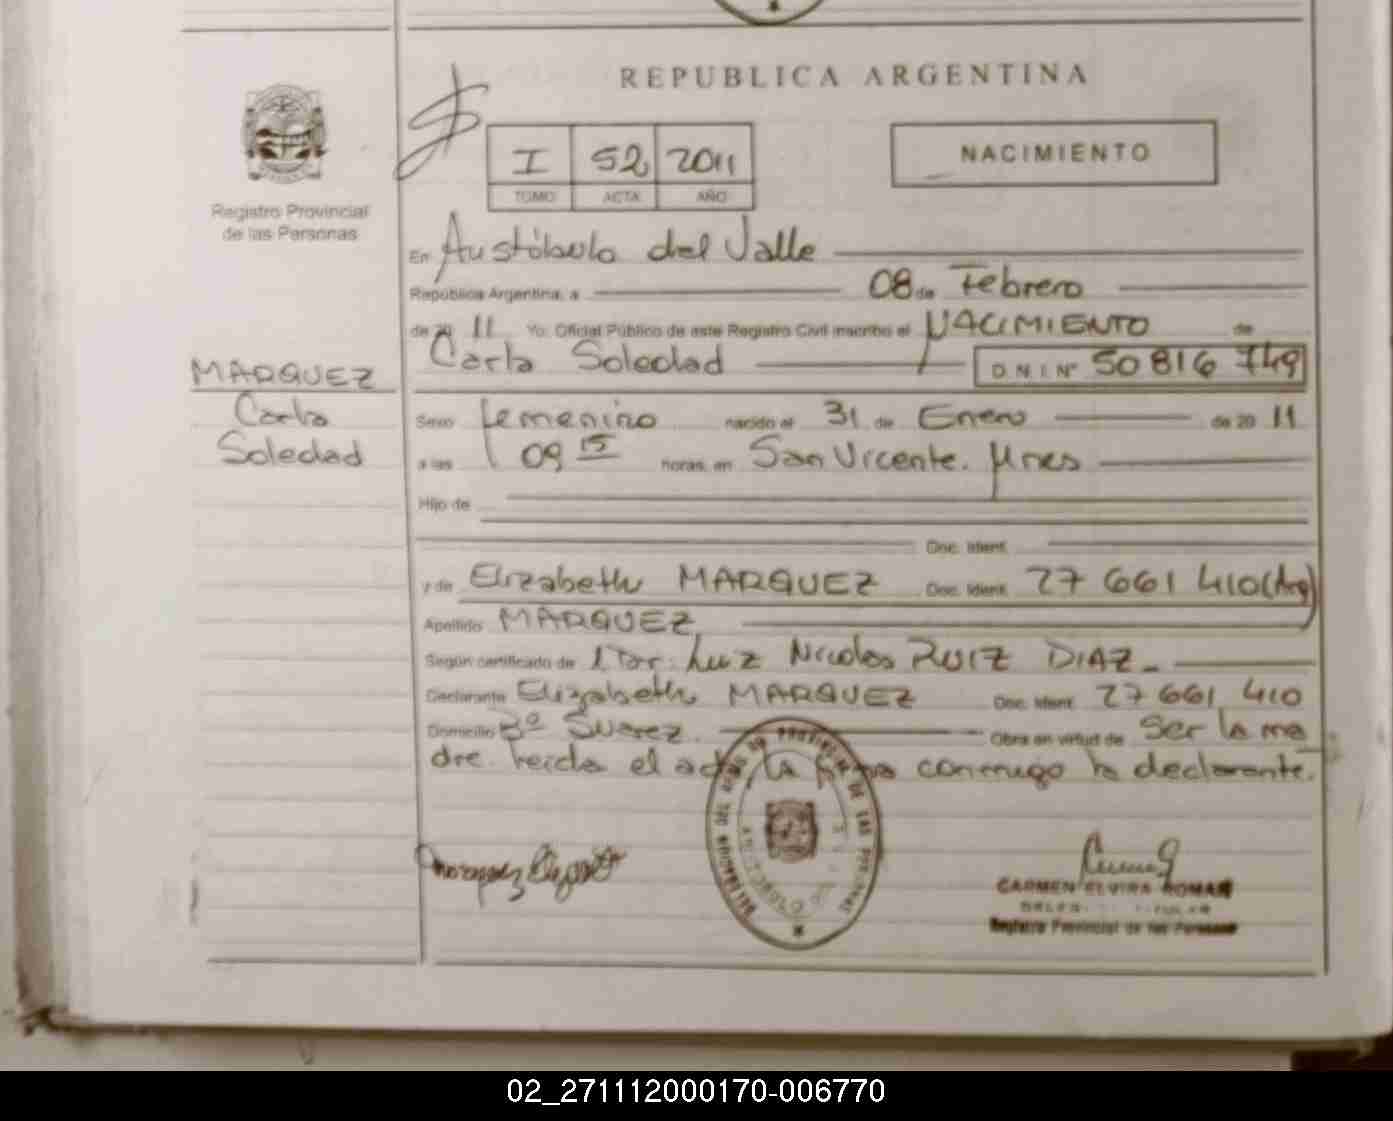 REPUBLICA ARGENTINA
I 52 2011
TOMO ACTA AÑO
NACIMIENTO
Registro Provincial
de las Personas
En Aristóbulo del Valle
República Argentina, a 08 de Febrero
de 20 11 Yo, Oficial Público de este Registro Civil inscribo el NACIMIENTO de
Carla Soledad D.N.I. Nº 50 816 749
MARQUEZ
Carla
Soledad
Sexo femenino nacido el 31 de Enero de 20 11
a las 09 15 horas, en San Vicente. Mnes
Hijo de
Doc. Ident.
y de Elizabeth MARQUEZ Doc. Ident. 27 661 410 (Arg)
Apellido MARQUEZ
Según certificado de Luz Nicolas RUIZ DIAZ
Declarante Elizabeth MARQUEZ Doc. Ident. 27 661 410
Domicilio Bº Suarez Obra en virtud de Ser la ma
dre. Leída el acta la firma conmigo la declarante.
Marquez Elizabeth
CARMEN ELVIRA ROMAN
Registro Provincial de las Personas
02_271112000170-006770